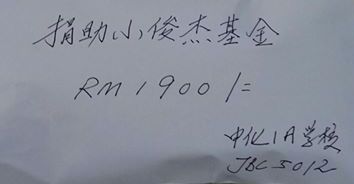 捐助小俊杰基金
RM 1900/=
中化1A学校
JBC5012